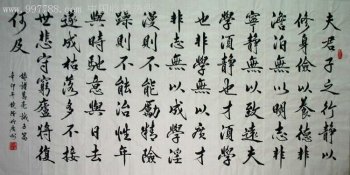 夫君子之行静以
修身儉以養德非
澹泊無以明志非
寧静無以致遠夫
學須静也才須學
也非學無以廣才
非志無以成學淫
漫則不能勵精險
躁則不能治性年
與時馳意與日去
遂成枯落多不接
世悲守窮廬將復
何及
錄諸葛亮誡子書
辛卯年
997788.com